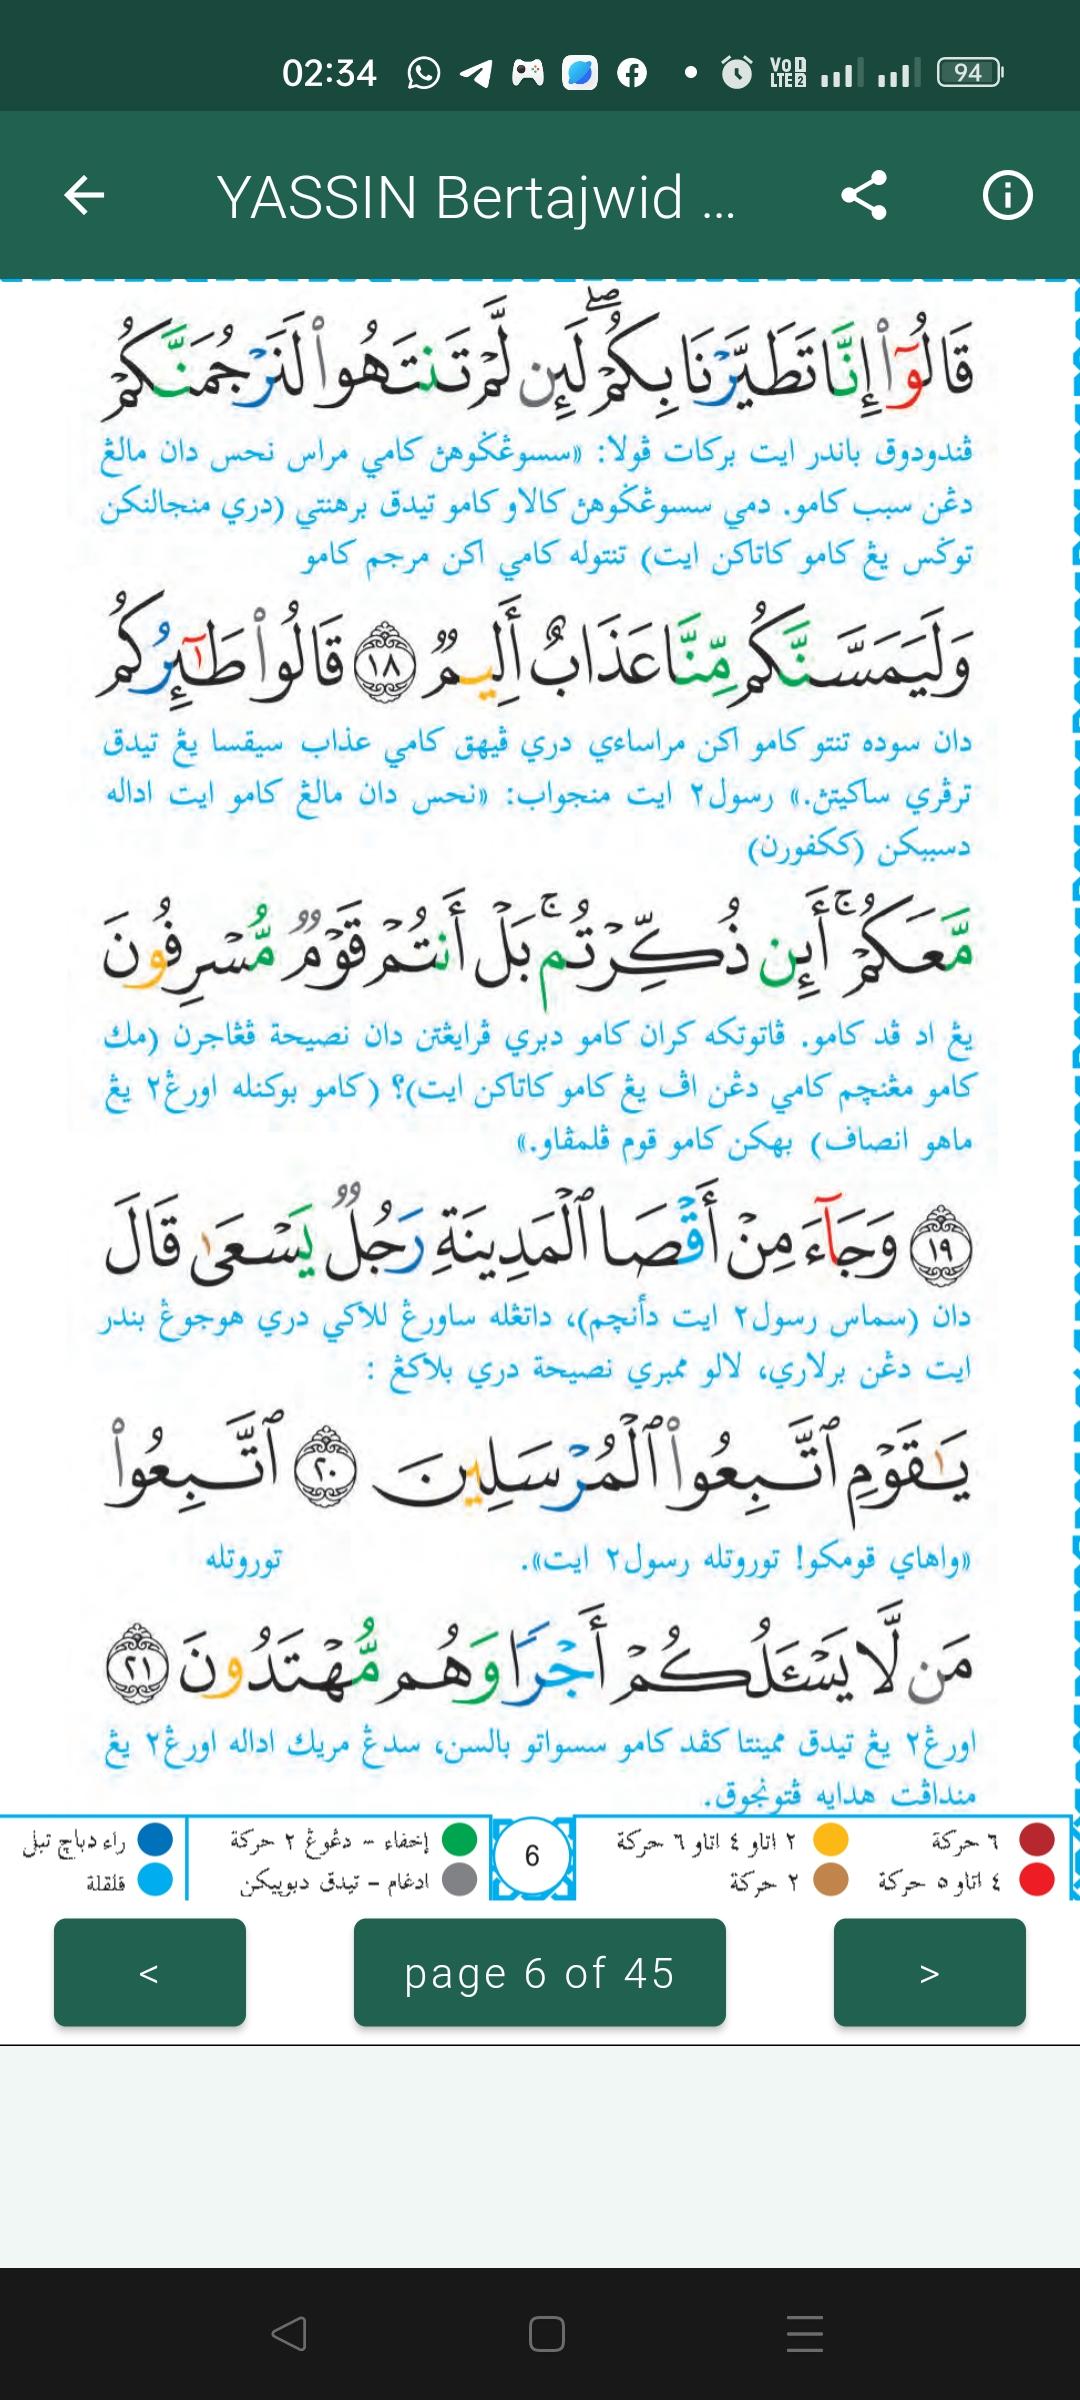 02:34
VoD LTE2 94
YASSIN Bertajwid ...
قَالُوٓا۟ إِنَّا تَطَيَّرْنَا بِكُمْ ۖ لَئِن لَّمْ تَنتَهُوا۟ لَنَرْجُمَنَّكُمْ
ڤندودوق باندر ايت بركات ڤولا: «سسوڠݢوهڽ كامي مراس نحس دان مالڠ
دڠن سبب كامو. دمي سسوڠݢوهڽ كالاو كامو تيدق برهنتي (دري منجالنكن
توݢس يڠ كامو كاتاكن ايت) تنتوله كامي اكن مرجم كامو
وَلَيَمَسَّنَّكُم مِّنَّا عَذَابٌ أَلِيمٌ ١٨ قَالُوا۟ طَٰٓئِرُكُم
دان سوده تنتو كامو اكن مراساءي دري ڤيهق كامي عذاب سيقسا يڠ تيدق
ترڤري ساكيتڽ.» رسول٢ ايت منجواب: «نحس دان مالڠ كامو ايت اداله
دسببكن (ككفورن)
مَّعَكُمْ ۚ أَئِن ذُكِّرْتُم ۚ بَلْ أَنتُمْ قَوْمٌ مُّسْرِفُونَ
يڠ اد ڤد كامو. ڤاتوتكه كران كامو دبري ڤرايڠتن دان نصيحة ڤڠاجرن (مك
كامو مڠنچم كامي دڠن اڤ يڠ كامو كاتاكن ايت)؟ (كامو بوكنله اورڠ٢ يڠ
ماهو انصاف) بهكن كامو قوم ڤلمڤاو.»
١٩ وَجَآءَ مِنْ أَقْصَا ٱلْمَدِينَةِ رَجُلٌ يَسْعَىٰ قَالَ
دان (سماس رسول٢ ايت دأنچم)، داتڠله ساورڠ للاكي دري هوجوڠ بندر
ايت دڠن برلاري، لالو ممبري نصيحة دري بلاكڠ :
يَٰقَوْمِ ٱتَّبِعُوا۟ ٱلْمُرْسَلِينَ ٢٠ ٱتَّبِعُوا۟
«واهاي قومكو! توروتله رسول٢ ايت». توروتله
مَن لَّا يَسْـَٔلُكُمْ أَجْرًا وَهُم مُّهْتَدُونَ ٢١
اورڠ٢ يڠ تيدق ممينتا كڤد كامو سسواتو بالسن، سدڠ مريك اداله اورڠ٢ يڠ
منداڤت هدايه ڤتونجوق.
٦ حركة ٢ اتاو ٤ اتاو ٦ حركة 6 إخفاء – دڠوڠ ٢ حركة راء دباچ تبل
٤ اتاو ٥ حركة ٢ حركة ادغام – تيدق دبوييكن قلقلة
< page 6 of 45 >